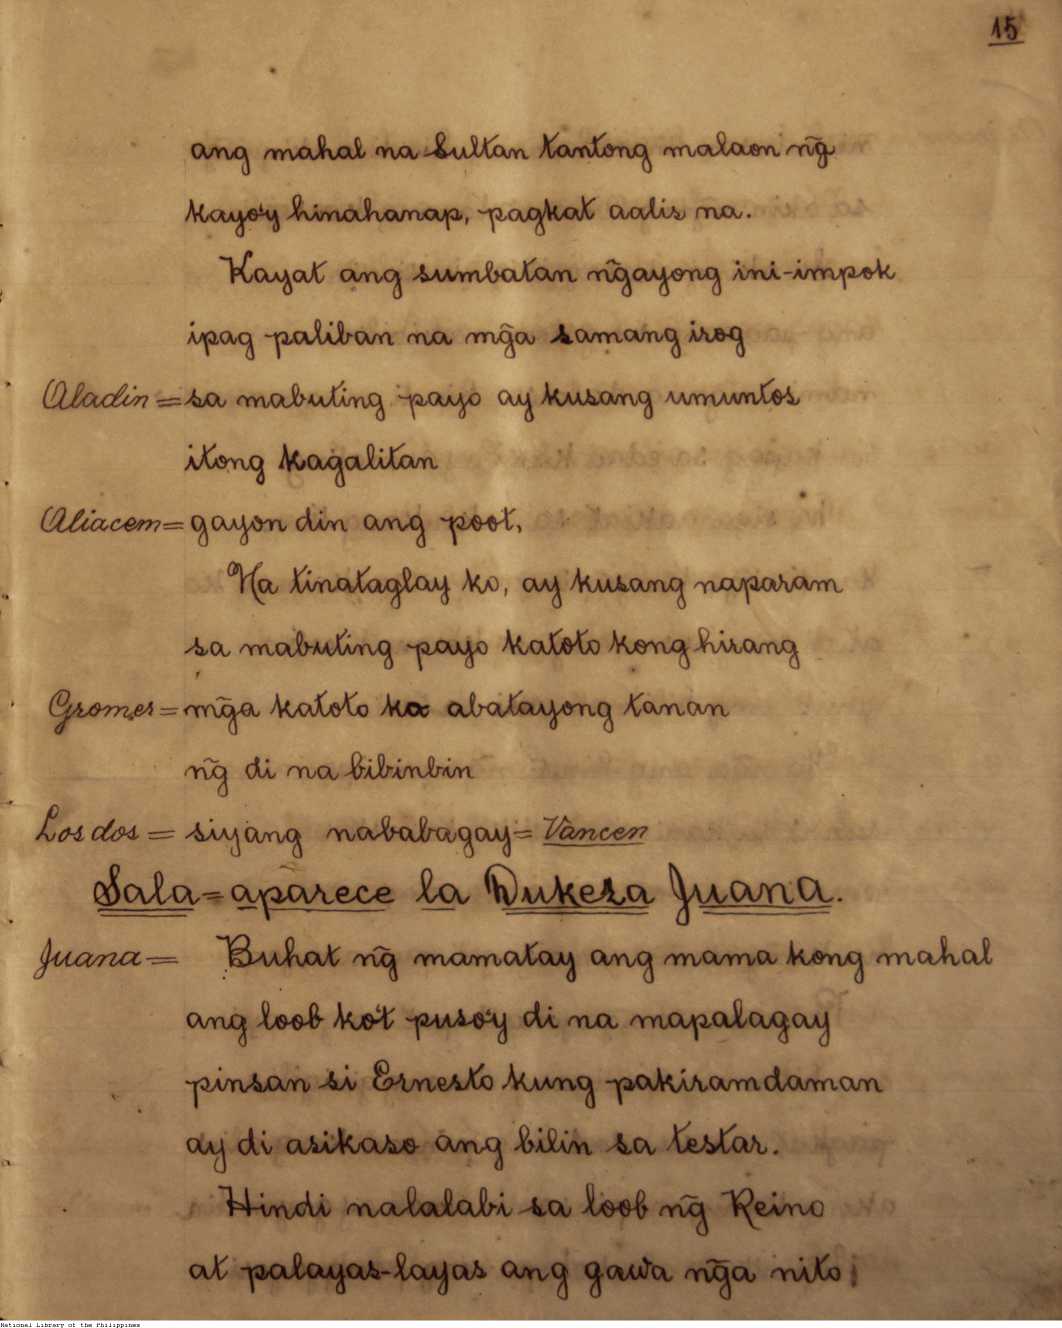 15
ang mahal na Sultan tantong malaon ng̃
kayo'y hinahanap, pagkat aalis na.
Kayat ang sumbatan ng̃ayong ini-impok
ipag-paliban na mg̃a samang irog
Aladin = sa mabuting payo ay kusang umuntos
itong kagalitan
Aliacem = gayon din ang poot,
Na tinataglay ko, ay kusang naparam
sa mabuting payo katoto kong hirang
Gromes = mg̃a katoto ko abatayong tanan
ng̃ di na bibinbin
Los dos = siyang nababagay = Váncen
Sala = aparece la Dukesa Juana.
Juana = Buhat ng̃ mamatay ang mama kong mahal
ang loob ko't puso'y di na mapalagay
pinsan si Ernesto kung pakiramdaman
ay di asikaso ang bilin sa testar.
Hindi nalalabi sa loob ng̃ Reino
at palayas-layas ang gawa ng̃a nito
National Library of the Philippines